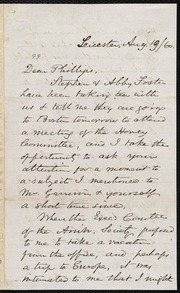 Leicester, Aug 19/60.
Dear Phillips,
Stephen & Abby Foster
have been taking tea with
us & tell me they are going
to Boston tomorrow to attend
a meeting of the Hovey
Committee, and I take the
opportunity to ask your
attention for a moment to
a subject I mentioned to
Mr. Garrison & yourself
a short time since.
When the Exec. Committee
of the Amer. Society, proposed
to me to take a vacation
from the office, and perhaps
a trip to Europe, it was
intimated to me that I might